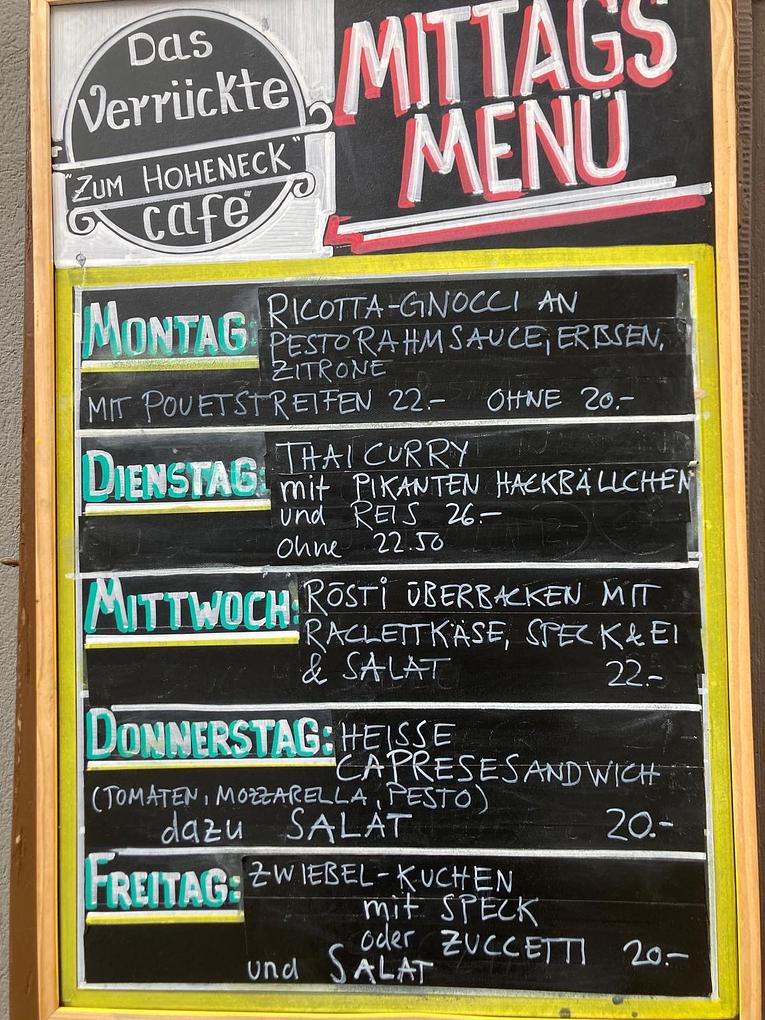 Das
Verrückte
"ZUM HOHENECK"
café
MITTAGS
MENÜ
MONTAG:
RICOTTA-GNOCCI AN
PESTORAHMSAUCE, ERBSEN,
ZITRONE
MIT POUETSTREIFEN 22.- OHNE 20.-
DIENSTAG:
THAI CURRY
mit PIKANTEN HACKBÄLLCHEN
und REIS 26.-
ohne 22.50
MITTWOCH:
RÖSTI ÜBERBACKEN MIT
RACLETTKÄSE, SPECK & EI
& SALAT 22.-
DONNERSTAG:
HEISSE
CAPRESESANDWICH
(TOMATEN, MOZZARELLA, PESTO)
dazu SALAT 20.-
FREITAG:
ZWIEBEL-KUCHEN
mit SPECK
oder ZUCCETTI 20.-
und SALAT